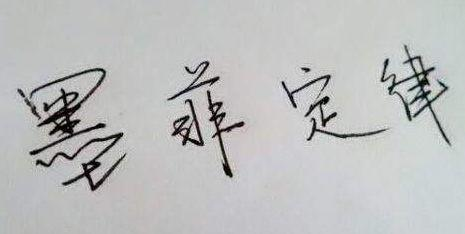 墨菲定律